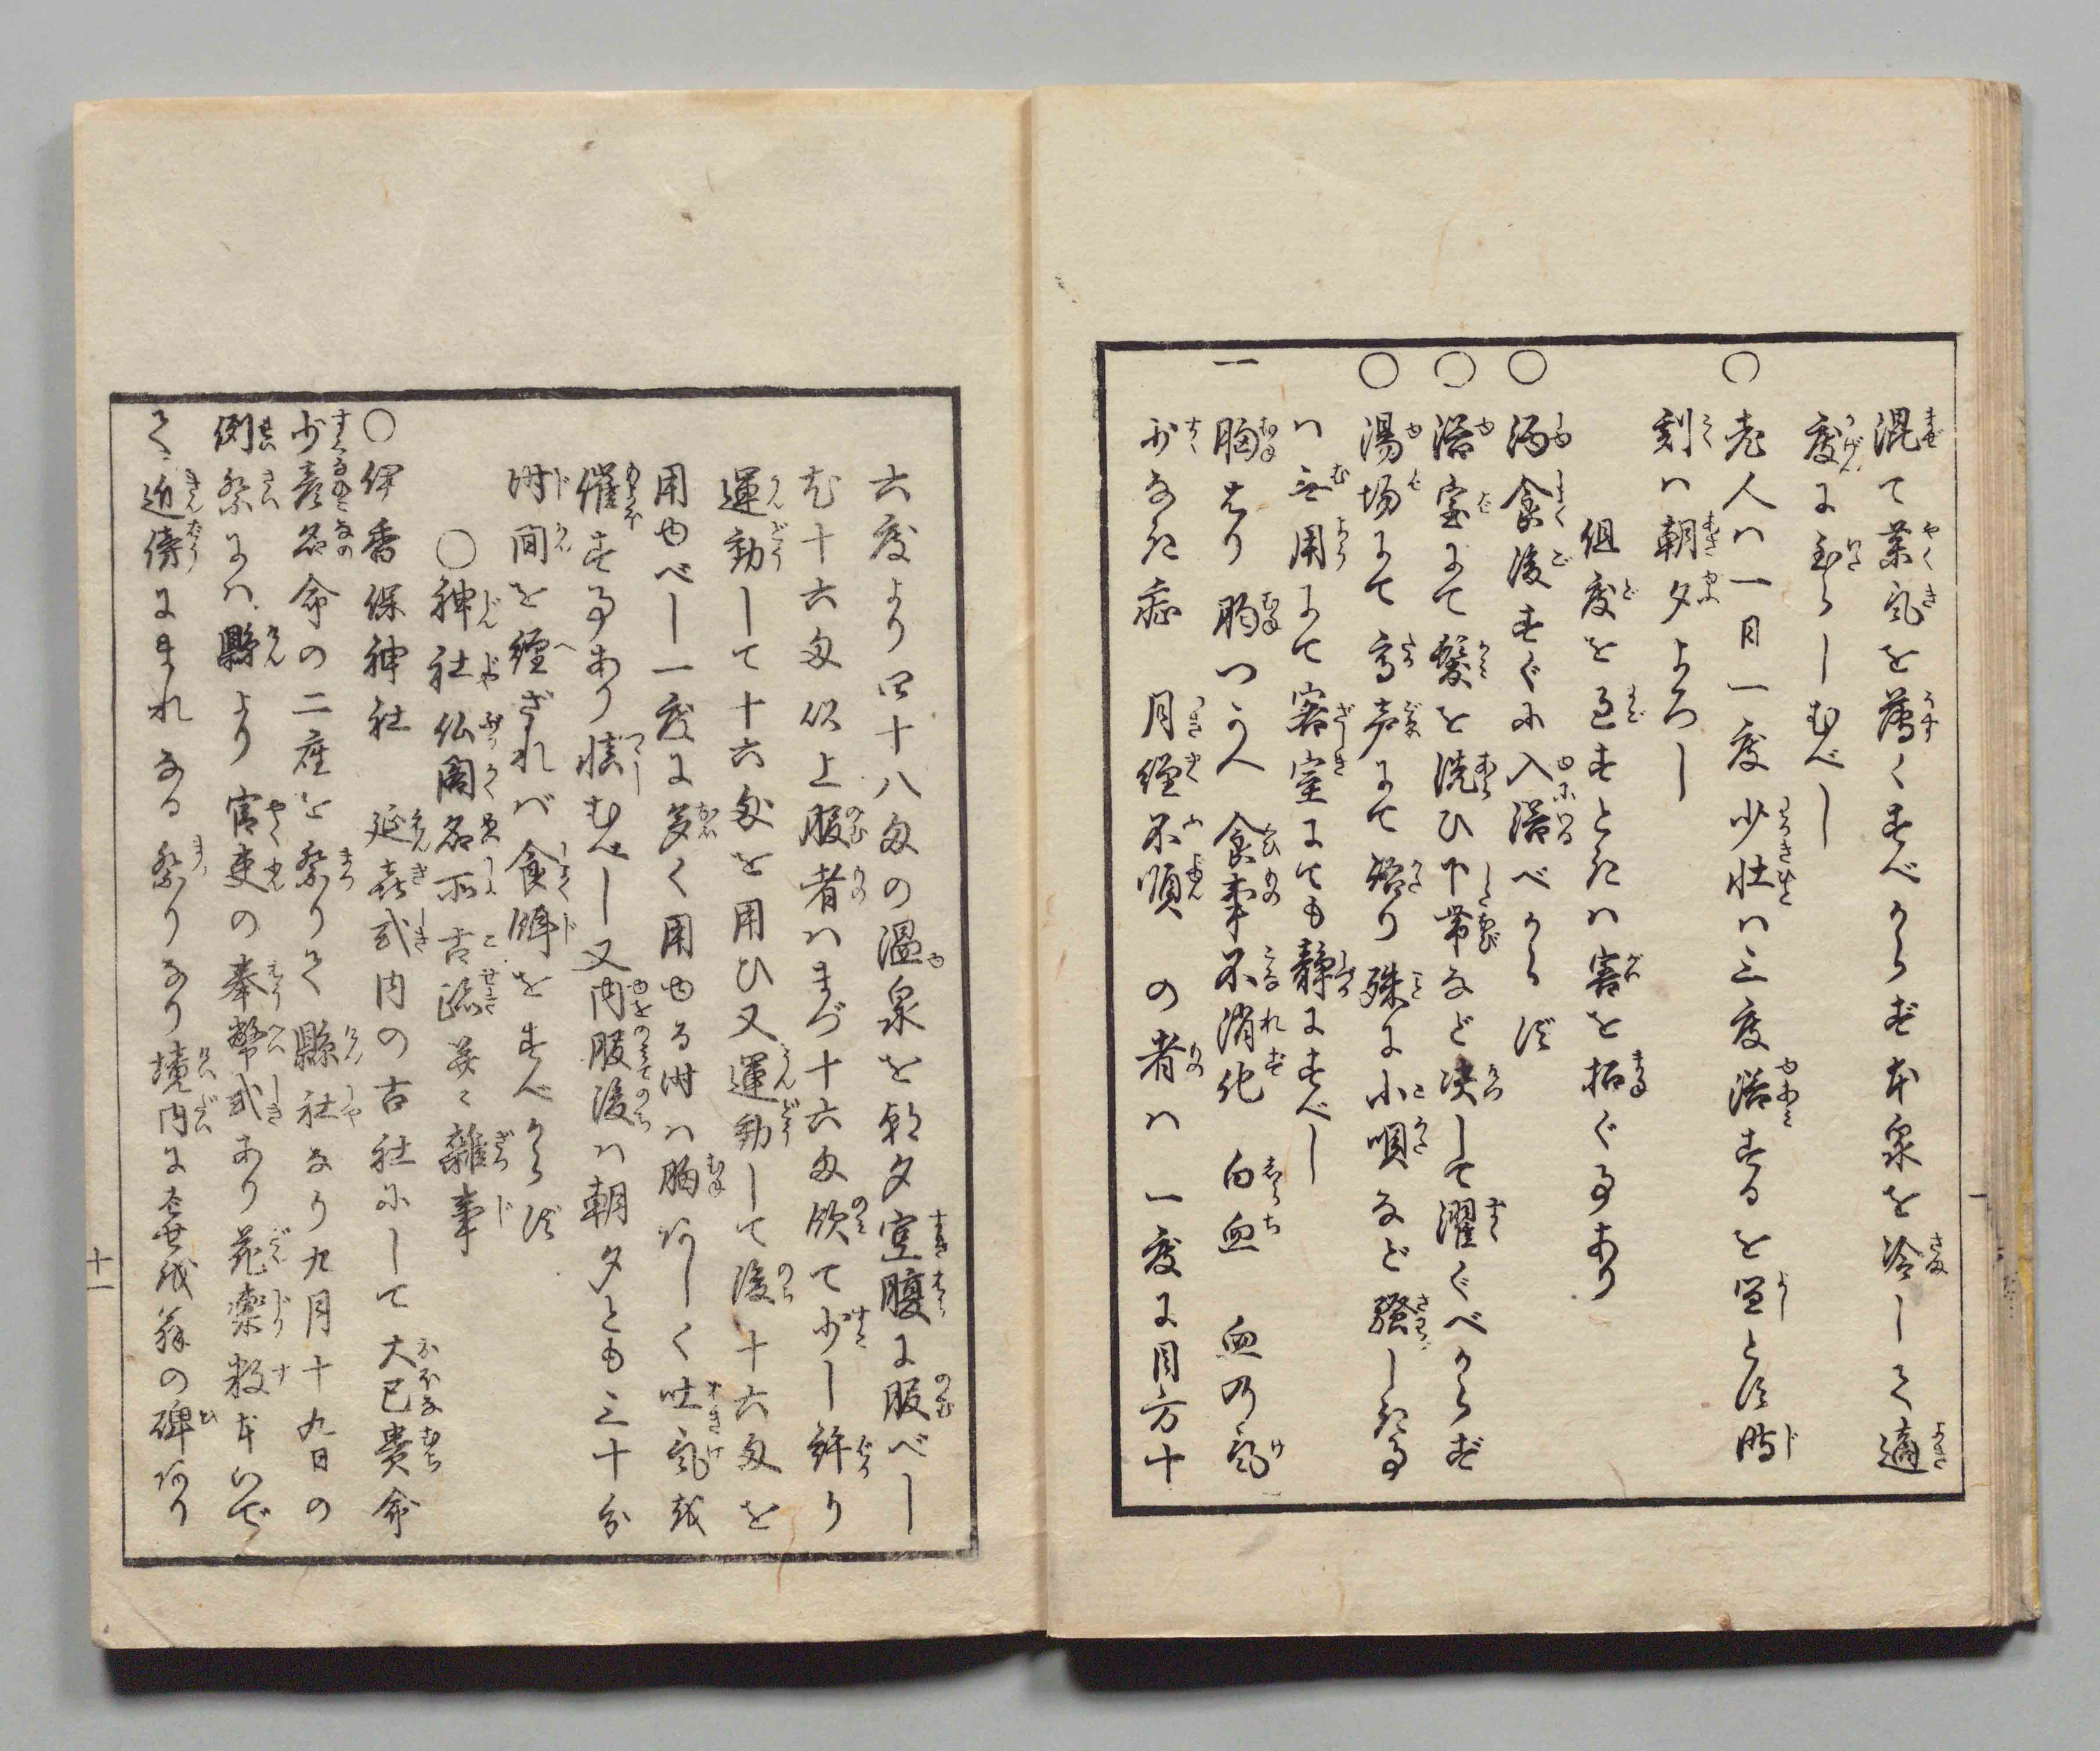 混て薬気を薄くすべからず本泉を冷して適
度に至らしむべし
○老人は一日一度少壮は三度浴するを宜とす時
刻は朝夕よろし
但度を過すときは害を招ぐ事あり
○酒食後すぐに入浴べからず
○浴室にて髪を洗ひ下帯など决して濯ぐべからず
○湯場にて高声にて語り殊に小唄など騒しき事
は無用にて客室にても静にすべし
一胸はり胸つかへ食事不消化白血血の気
少なき症月経不順の者は一度に目方十
六度より四十八匁の温泉を朝夕空腹に服べし
尤十六匁以上服者はまづ十六匁飲て少し許り
運動して十六匁を用ひ又運動して後十六匁を
用ゆべし一度に多く用ゆる時は胸あしく吐気を
催する事あり慎むべし又内服後は朝夕とも三十分
時間を経ざれば食餌をすべからず
○神社仏閣名所古跡並に雑事
○伊香保神社延喜式内の古社にして大己貴命
少彦名命の二座を祭りて県社なり九月十九日の
例祭には県より官吏の奉幣式あり花火数本いで
て近傍にまれなる祭りなり境内に芭蕉翁の碑あり
十一